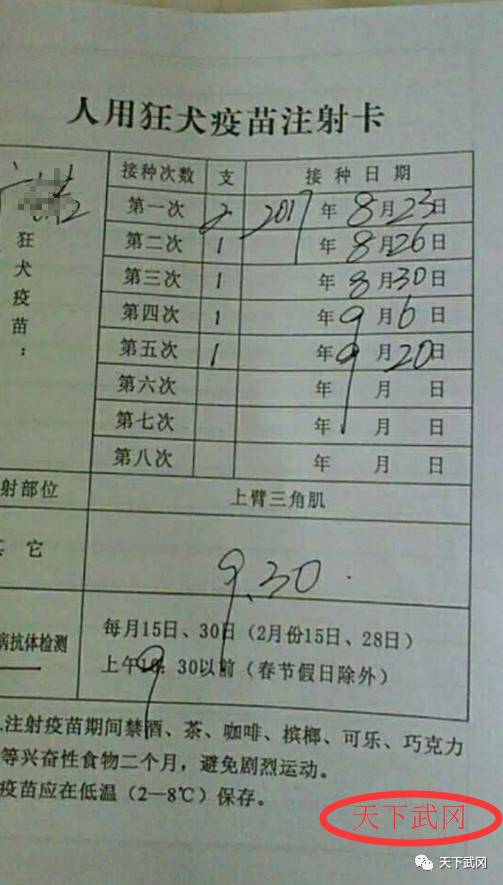 人用狂犬疫苗注射卡
接种次数 支 接种日期
第一次 2 2017年8月23日
第二次 1 年8月26日
第三次 1 年8月30日
第四次 1 年9月6日
第五次 1 年9月20日
第六次 年 月 日
第七次 年 月 日
第八次 年 月 日
狂犬疫苗：
射部位 上臂三角肌
其它 9.30
病抗体检测 每月15日、30日（2月份15日、28日）
上午 9：30以前（春节假日除外）
注射疫苗期间禁酒、茶、咖啡、槟榔、可乐、巧克力
等兴奋性食物二个月，避免剧烈运动。
疫苗应在低温（2—8℃）保存。
天下武冈
天下武冈